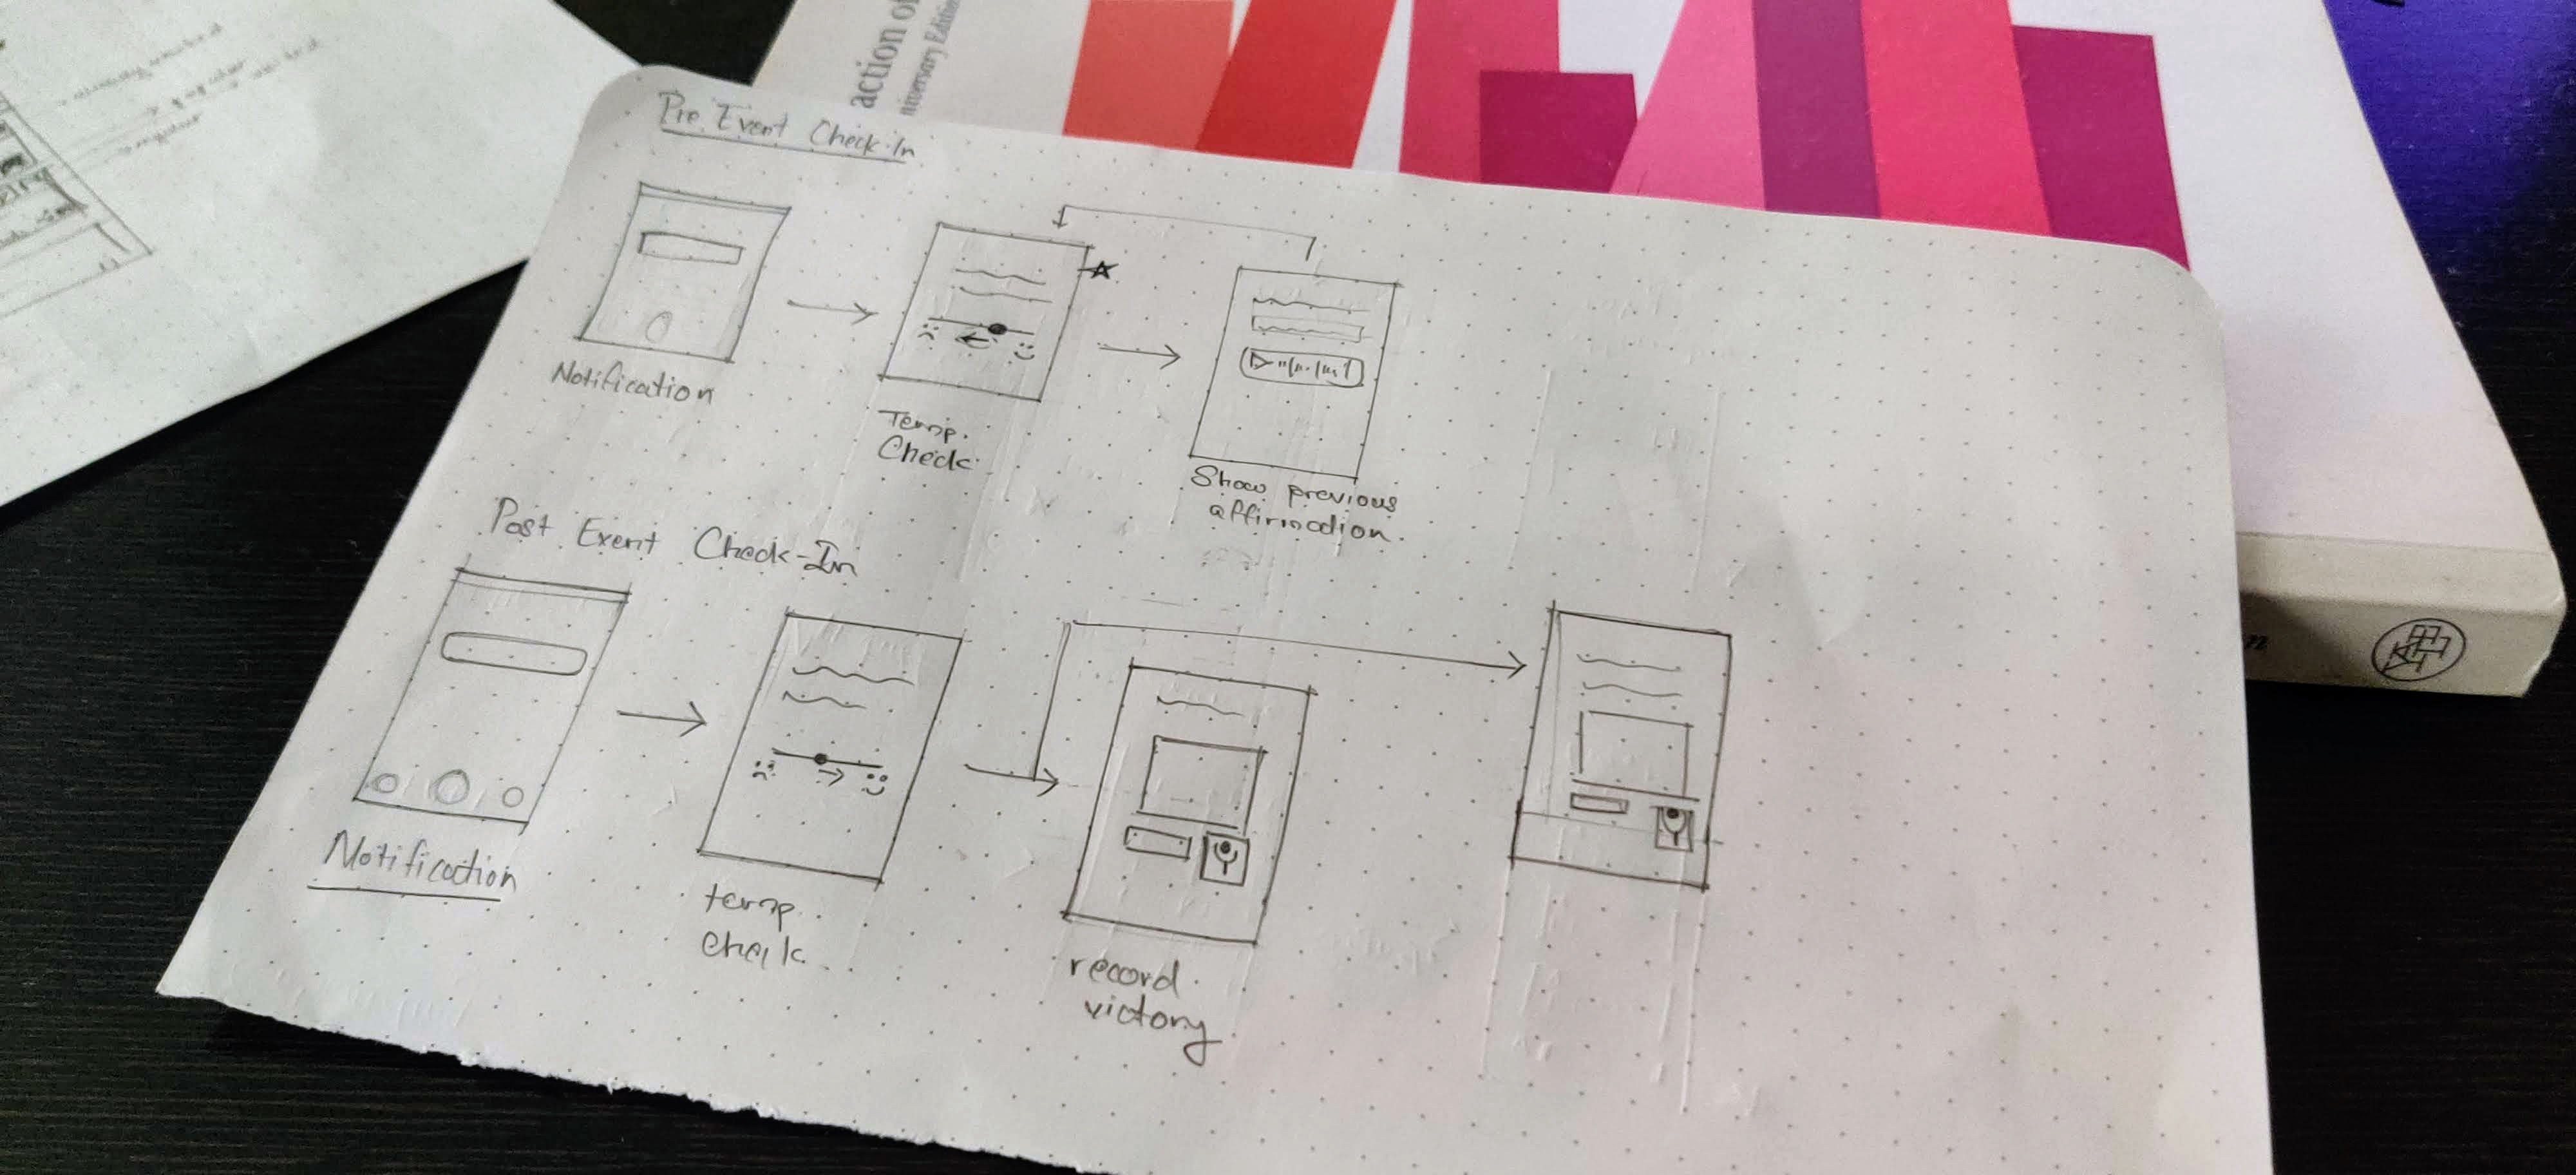 action of
niversary Edition
Pre Event Check-In
Notification
Temp.
Check
Show previous
affirmation.
Post Event Check-In
Notification
temp
check
record
victory